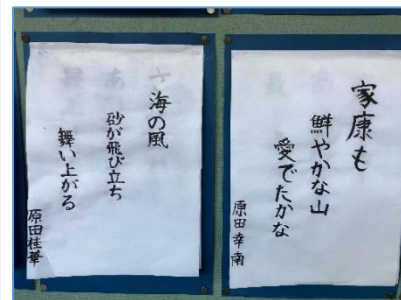 家康も
鮮やかな山
愛でたかな
原田幸南
海の風
砂が飛び立ち
舞い上がる
原田桂華